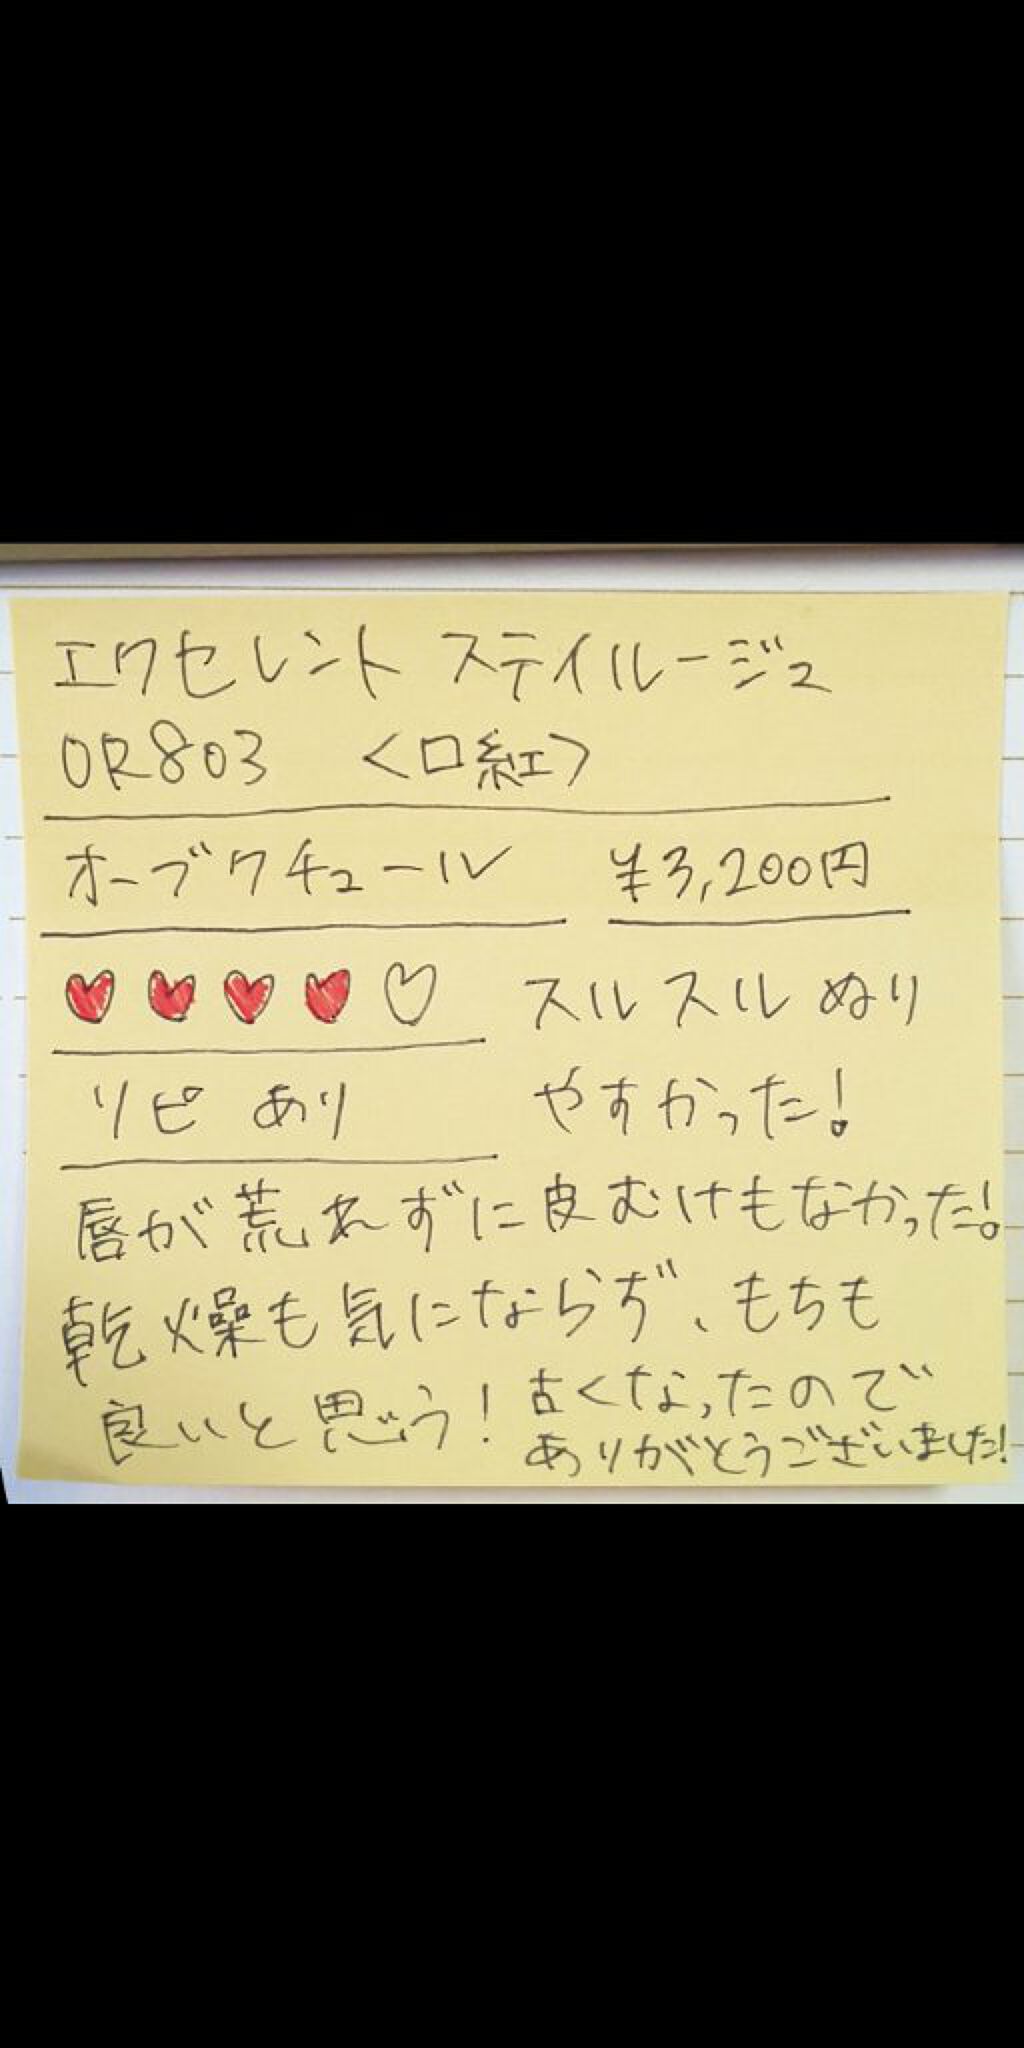 エクセレント ステイルージュ
OR803 <口紅>
オーブクチュール ¥3,200円
スルスルぬり
リピあり やすかった!
唇が荒れずに皮むけもなかった!
乾燥も気にならず、もちも
良いと思う! 古くなったので
ありがとうございました!